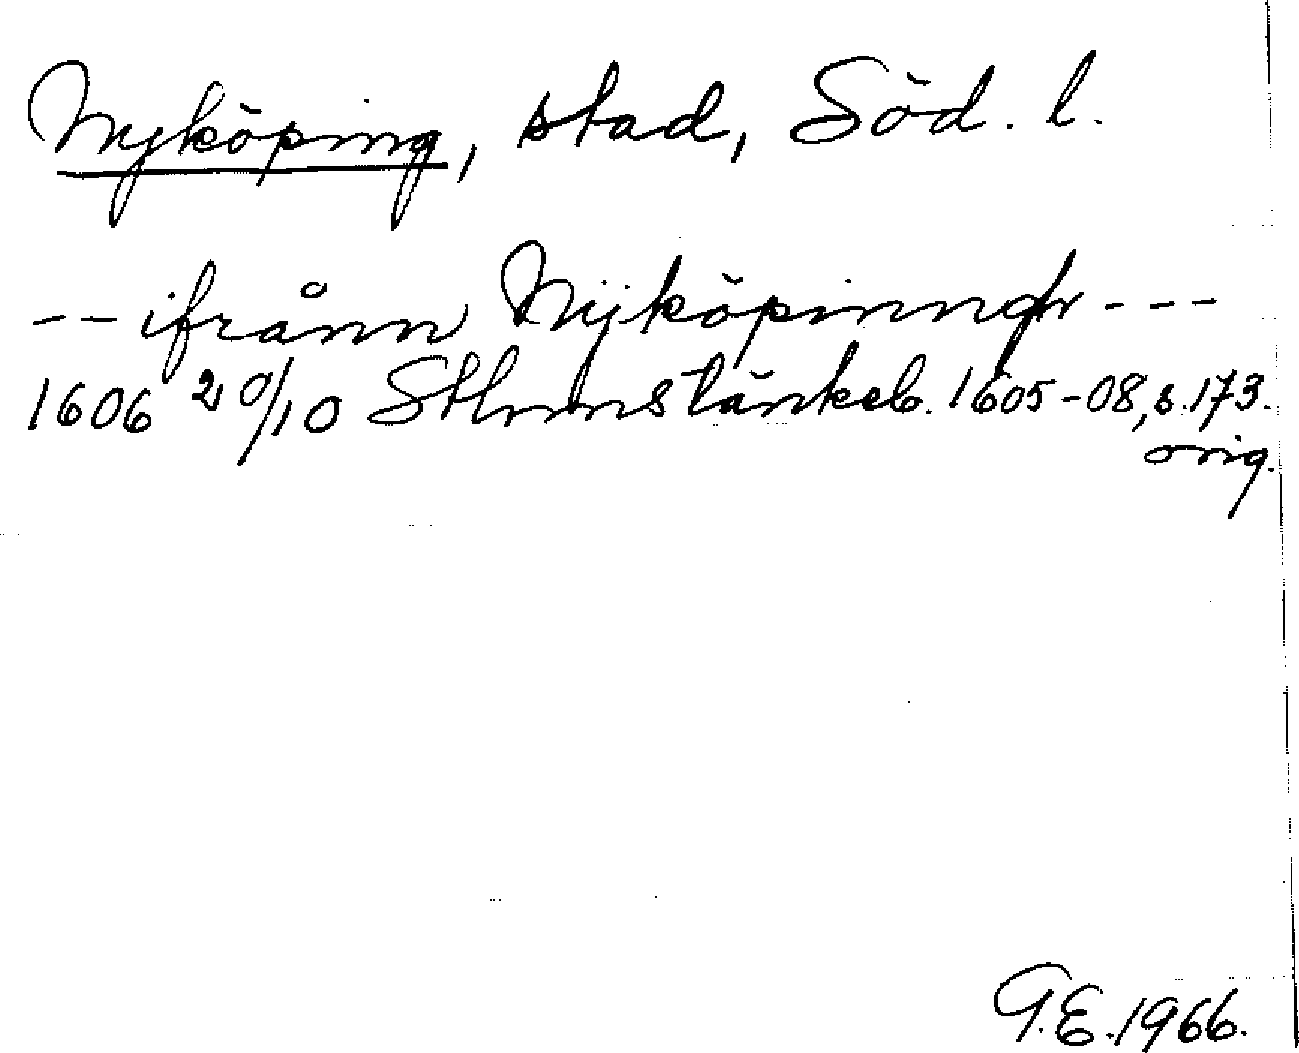 Nyköping, stad, Söd. l.
-- ifrånn Nyköpinngh ---
1606 20/10 Sthmstänkeb. 1605-08, s. 173.
orig.
G.E. 1966.